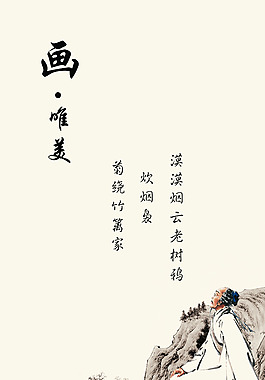 画·唯美
漠漠烟云老树鸦
炊烟袅
菊绕竹篱家